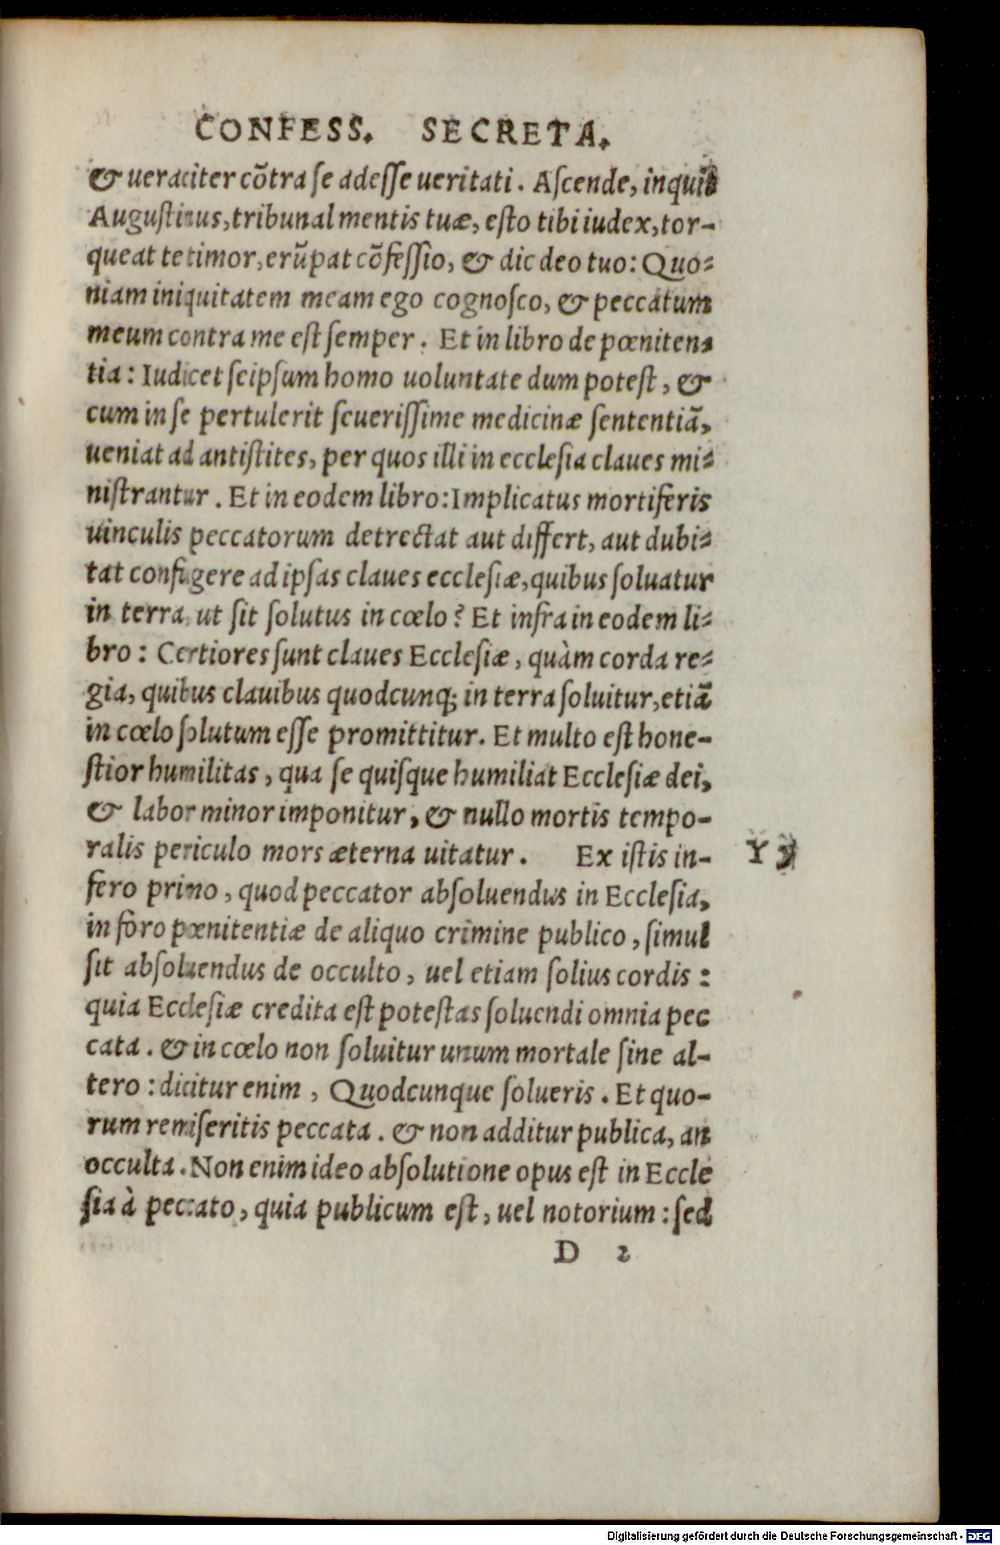 CONFESS. SECRETA.
& ueraciter cōtra se adesse ueritati. Ascende, inquit
Augustinus, tribunal mentis tuæ, esto tibi iudex, tor-
queat te timor, erūpat cōfessio, & dic deo tuo: Quo-
niam iniquitatem meam ego cognosco, & peccatum
meum contra me est semper. Et in libro de pœniten-
tia: Iudicet seipsum homo uoluntate dum potest, &
cum in se pertulerit seuerissime medicinæ sententiā,
ueniat ad antistites, per quos illi in ecclesia claues mi-
nistrantur. Et in eodem libro: Implicatus mortiferis
uinculis peccatorum detrectat aut differt, aut dubi-
tat confugere ad ipsas claues ecclesiæ, quibus soluatur
in terra, ut sit solutus in cœlo? Et infra in eodem li-
bro: Certiores sunt claues Ecclesiæ, quàm corda re-
gia, quibus clauibus quodcunq; in terra soluitur, etiā
in cœlo solutum esse promittitur. Et multo est hone-
stior humilitas, qua se quisque humiliat Ecclesiæ dei,
& labor minor imponitur, & nullo mortis tempo-
ralis periculo mors æterna uitatur. Ex istis in- Y
fero primo, quod peccator absoluendus in Ecclesia,
in foro pœnitentiæ de aliquo crimine publico, simul
sit absoluendus de occulto, uel etiam solius cordis:
quia Ecclesiæ credita est potestas soluendi omnia pec
cata. & in cœlo non soluitur unum mortale sine al-
tero: dicitur enim, Quodcunque solueris. Et quo-
rum remiseritis peccata. & non additur publica, an
occulta. Non enim ideo absolutione opus est in Eccle
sia à peccato, quia publicum est, uel notorium: sed
D 2
Digitalisierung gefördert durch die Deutsche Forschungsgemeinschaft - DFG